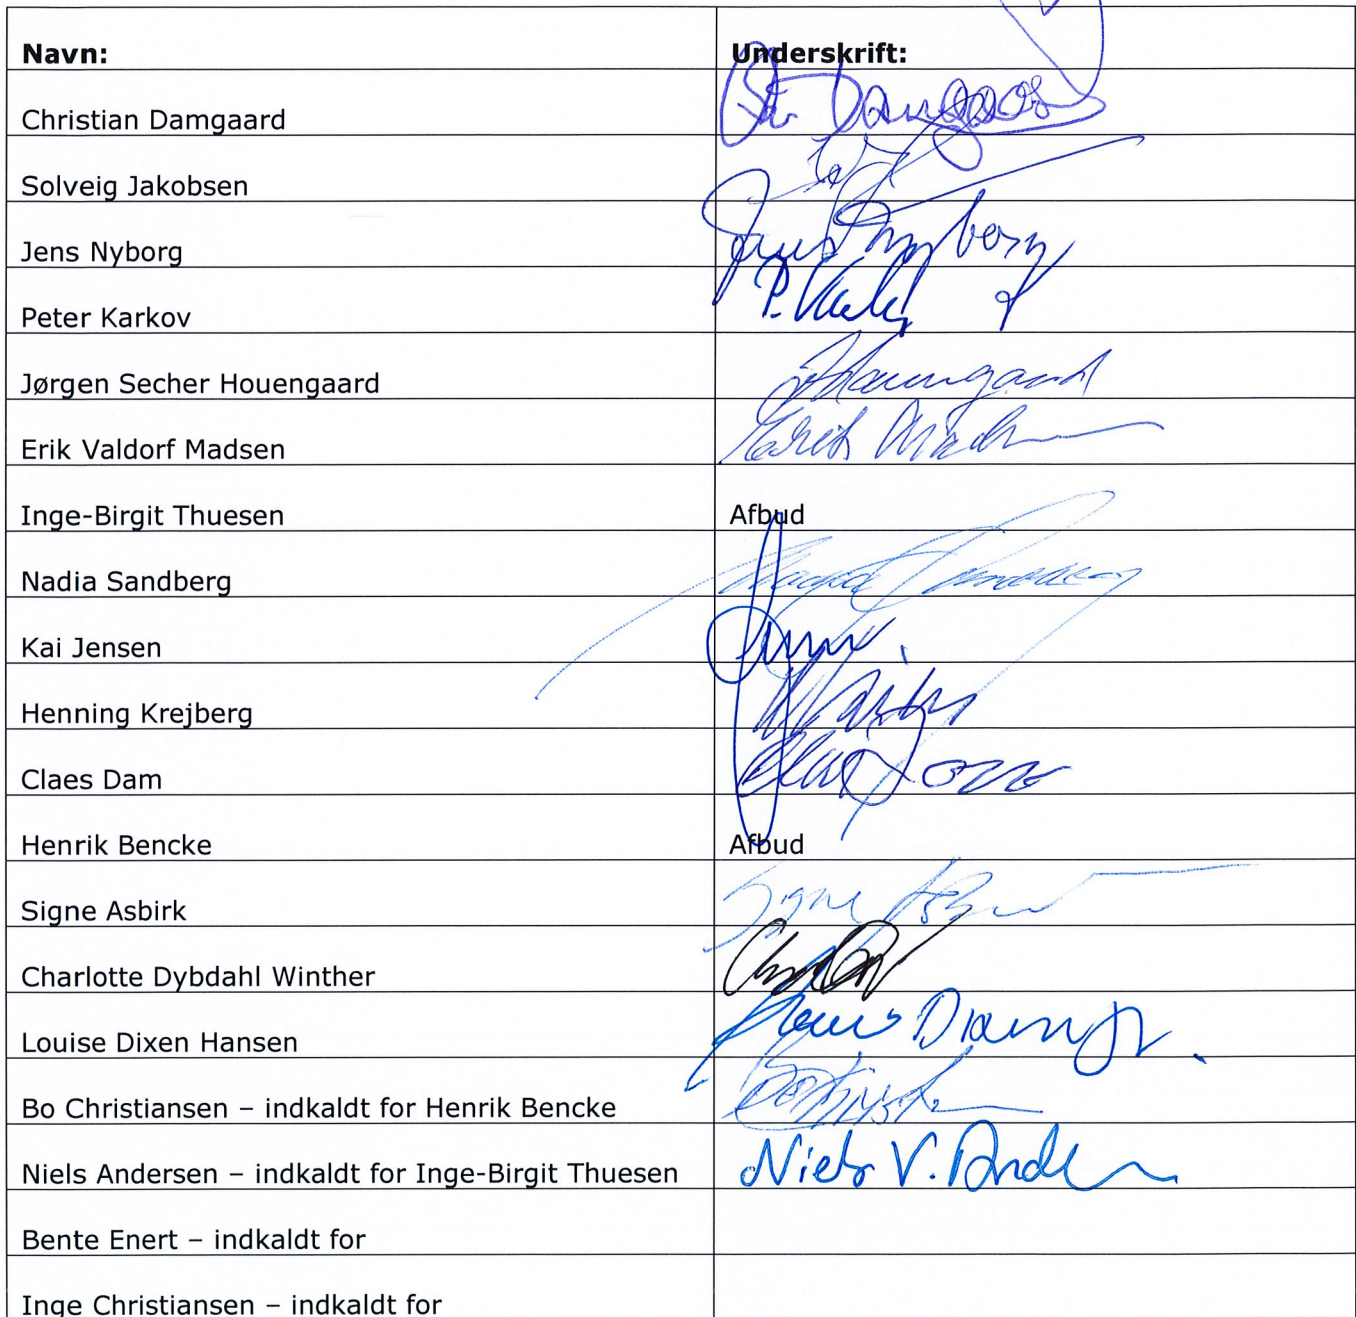 Navn: Underskrift:
Christian Damgaard
Solveig Jakobsen
Jens Nyborg Jens Nyborg
Peter Karkov P.
Jørgen Secher Houengaard
Erik Valdorf Madsen
Inge-Birgit Thuesen Afbud
Nadia Sandberg
Kai Jensen
Henning Krejberg
Claes Dam
Henrik Bencke Afbud
Signe Asbirk Signe
Charlotte Dybdahl Winther
Louise Dixen Hansen
Bo Christiansen – indkaldt for Henrik Bencke
Niels Andersen – indkaldt for Inge-Birgit Thuesen Niels V.
Bente Enert – indkaldt for
Inge Christiansen – indkaldt for